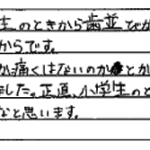 生のときから歯並びが
からです。
か痛くはないのかとか
した。正直、小学生のと
なと思います。